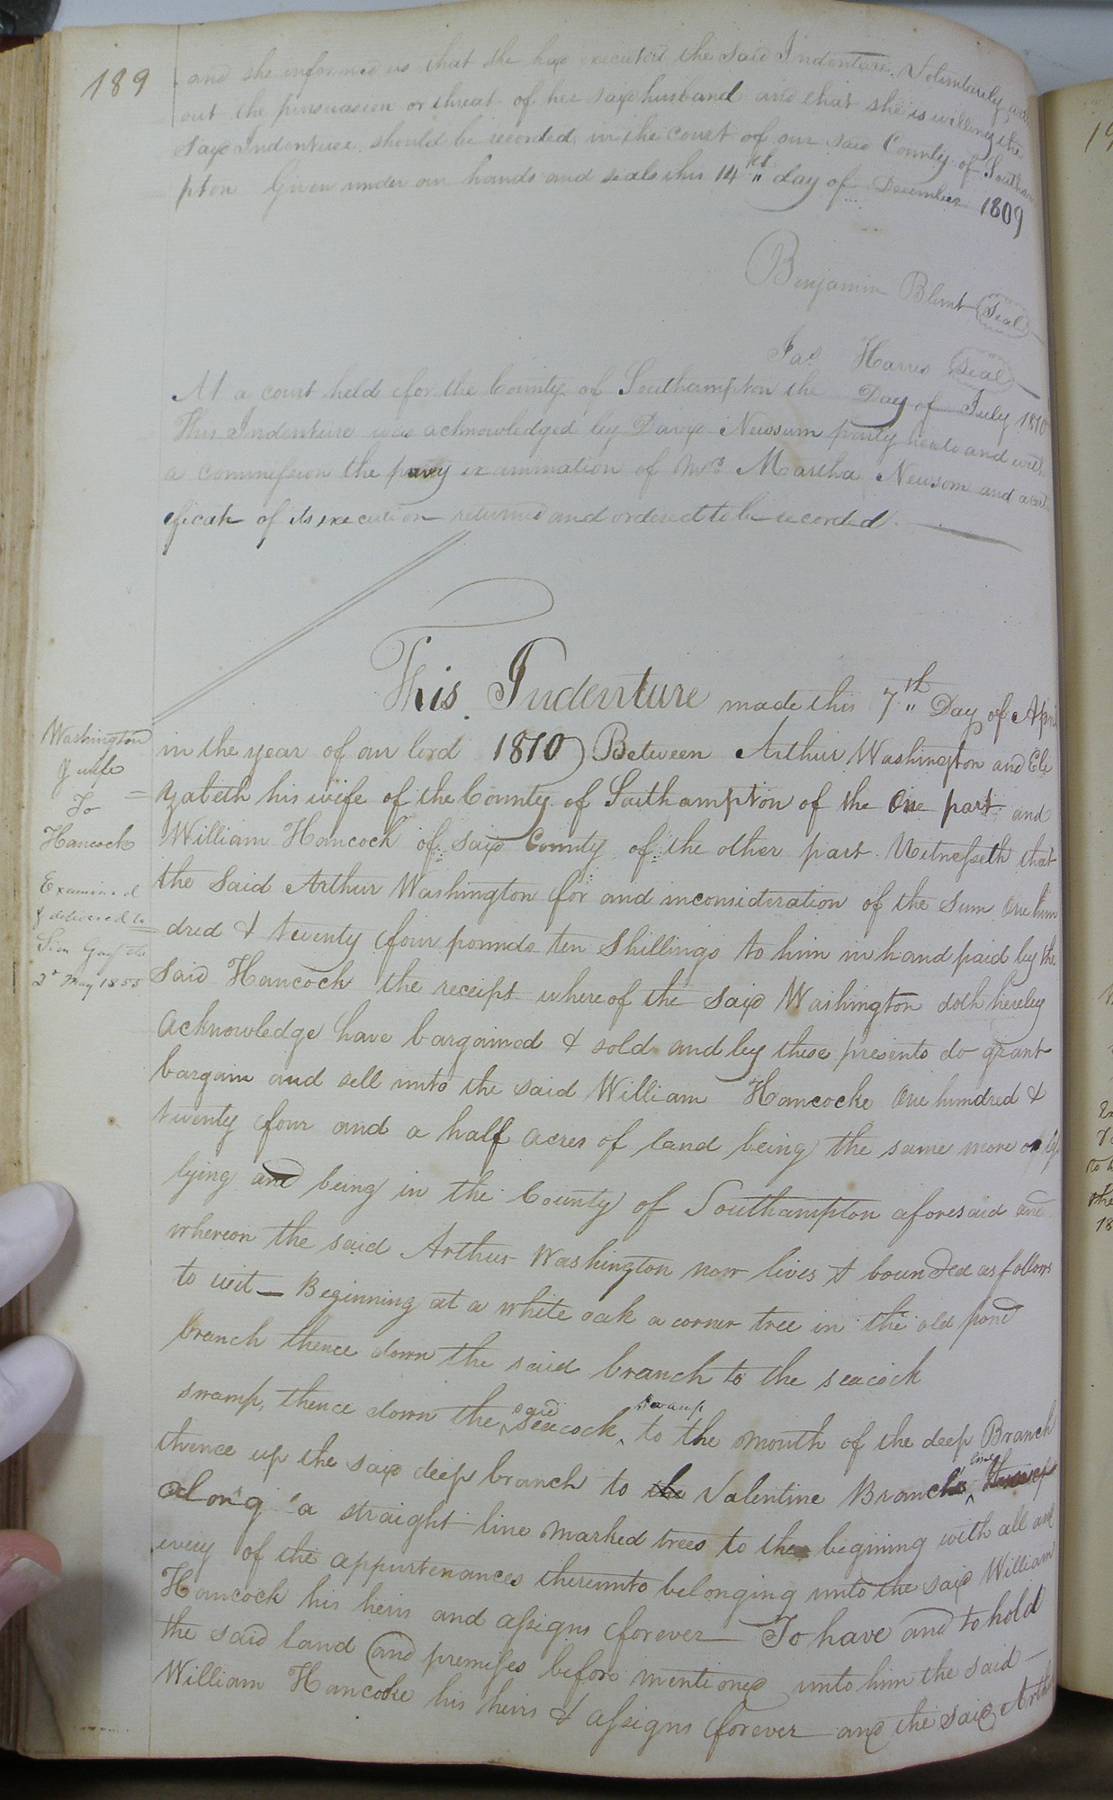 189
and she informed us that she has executed the said Indenture Voluntarily with
out the persuasion or threat of her said husband and that she is willing the
said Indenture should be recorded in the court of our said County of Southam
pton Given under our hands and seals this 14th day of December 1809
Benjamin Blunt Seal
Jas. Harris Seal
At a court held for the County of Southampton the Day of July 1810
This Indenture was acknowledged by Newsum party hereto and with
a commission the privy examination of Mrs Martha Newsom and a certi
ficate of its execution returned and ordered to be recorded.
This Indenture made this 7th Day of April
in the year of our lord 1810 Between Arthur Washington and Eli
zabeth his wife of the County of Southampton of the One part and
William Hancock of said County of the other part Witnesseth that
the Said Arthur Washington for and inconsideration of the Sum One hun
dred & twenty four pounds ten Shillings to him in hand paid by the
Said Hancock the receipt whereof the said Washington doth hereby
acknowledge have bargained & sold and by these presents do grant
bargain and sell unto the said William Hancocke One hundred &
twenty four and a half acres of land being the same more or
lying and being in the County of Southampton aforesaid and
whereon the said Arthur Washington now lives & bounded as follows
to wit — Beginning at a white oak a corner tree in the old pond
branch thence down the said branch to the seacock
swamp, thence down the said seacock swamp to the mouth of the deep Branch
thence up the said deep branch to Valentine Branch's line
along a straight line marked trees to the begining with all and
every of the appurtenances thereunto belonging unto the said William
Hancock his heirs and assigns forever — To have and to hold
the said land and premises before mentioned unto him the said —
William Hancocke his heirs & assigns forever and the said Arthur
Washington
& wife
To
Hancock
Examined
& delivered to
2d May 1855